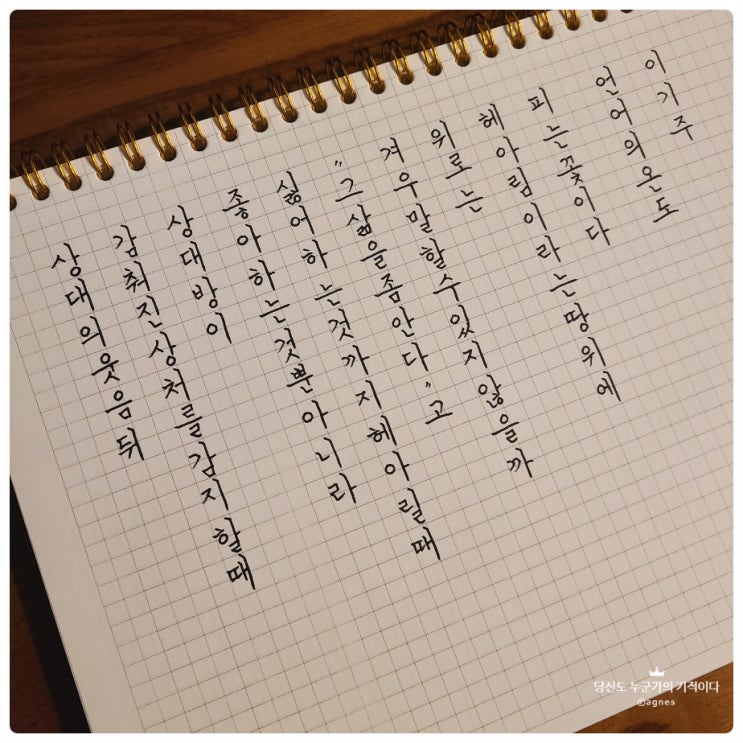 상대의웃음뒤
감춰진상처를감지할때
상대방이
좋아하는것뿐아니라
싫어하는것까지헤아릴때
"그삶을좀안다"고
겨우말할수있지않을까
위로는
헤아림이라는땅위에
피는꽃이다
언어의온도
이기주
당신도 누군가의 기적이다
@agnes